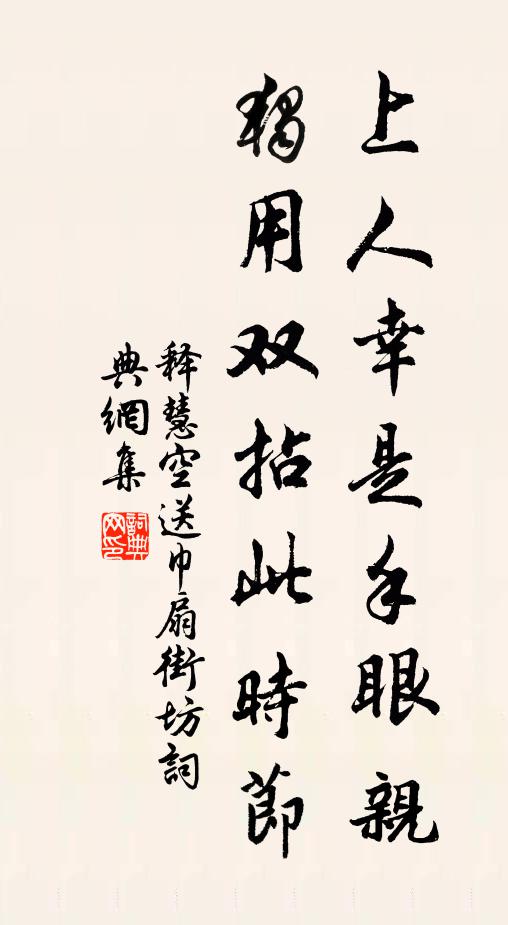 上人幸是手眼親
獨用双拈此時節
释慧空送巾扇街坊詞
典網集
詞典網印